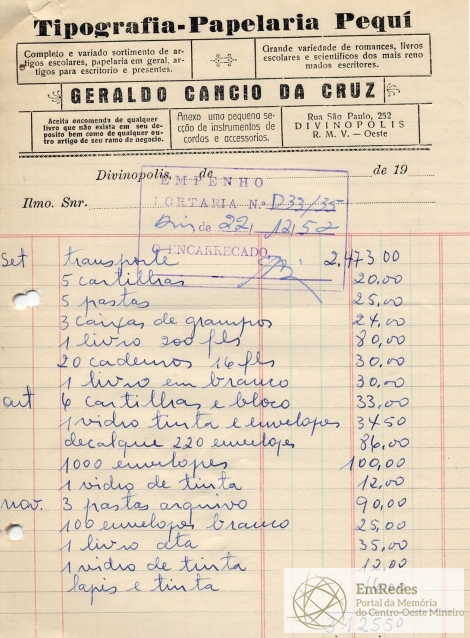 Tipografia-Papelaria Pequí
Completo e variado sortimento de ar-
tigos escolares, papelaria em geral, ar-
tigos para escritorio e presentes.
Grande variedade de romances, livros
escolares e scientificos dos mais reno
mados escritores.
GERALDO CANCIO DA CRUZ
Aceita encomends de qualquer
livro que não exista em seu de-
posito bem como de qualquer ou-
tro artigo de seu ramo de negocio.
Anexo uma pequena se-
cção de instrumentos de
cordas e accessorios.
Rua São Paulo, 252
DIVINOPOLIS
R. M. V. — Oeste
Divinopolis, de de 19
EMPENHO
Ilmo. Snr.
PORTARIA N.º D33/35
de 22/12/52
O ENCARREGADO
Set transporte 2.473 00
5 cartilhas 20,00
5 pastas 25,00
3 caixas de grampos 24,00
1 livro 200 fls 80,00
20 cadernos 16 fls 30,00
1 livro em branco 30,00
out 6 cartilhas e bloco 33,00
1 vidro tinta e envelopes 34 50
decalque 220 envelopes 86,00
1000 envelopes 100,00
1 vidro de tinta 12,00
nov. 3 pastas arquivo 90,00
100 envelopes branco 25,00
1 livro ata 35,00
1 vidro de tinta 12,00
lapis e tinta
EmRedes
Portal da Memória
do Centro-Oeste Mineiro